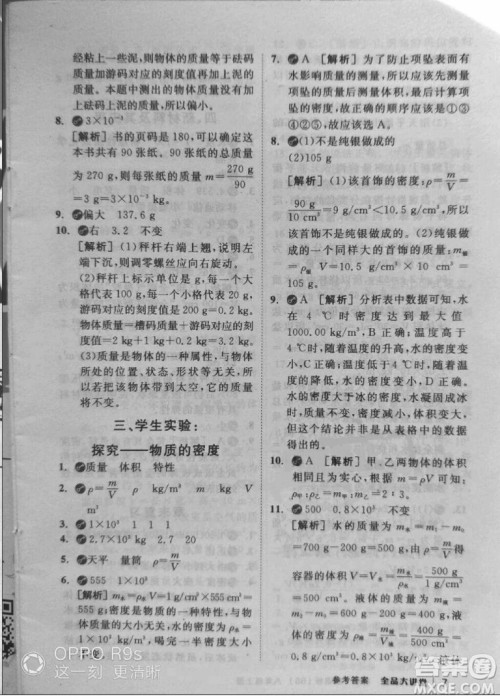 经粘上一些泥,则物体的质量等于砝码
质量加游码对应的刻度值再加上泥的
质量。本题中测出的物体质量没有加
上砝码上泥的质量,所以偏小。
8. 3×10⁻³
[解析] 书的页码是180,可以肯定这
本书共有90张纸。90张纸的总质量
为270 g,则每张纸的质量 m=270 g/90
=3 g=3×10⁻³ kg。
9. 偏大 137.6 g
10. 右 3.2 不变
[解析] (1)秤杆右端上翘,说明左
端下沉,则调零螺丝应向右旋动。
(2)秤杆上标示单位是 g,每一个大
格代表100 g,每一个小格代表20 g,
游码对应的刻度值为200 g=0.2 kg,
物体质量=槽码质量+游码对应质
量=2 kg+1 kg+0.2 kg=3.2 kg。
(3)质量是物体的一种属性,与物体
所处的位置、状态、形状等无关,所
以若把该物体带到太空,它的质量
将不变。
三、学生实验:
探究——物质的密度
1. 质量 体积 特性
2. ρ=m/V ρ kg/m³ m kg V
m³
3. 1×10³ 1 1 1
4. 2.7×10³ kg/m³ 20
5. 天平 量筒 ρ=m/V
6. 555 1×10³
[解析] m水=ρ水V=1 g/cm³×555 cm³=
555 g;密度是物质的一种特性,与物
质质量的大小无关,水的密度为 ρ水=
1×10³ kg/m³,喝完一半水密度
不变。
7. A [解析] 为了防止项坠表面有
水影响质量的测量,所以应该先测量
项坠的质量后测量体积,最后计算项
坠的密度,故正确的顺序应该是①③
④②⑤,故应该选A。
8. (1)不是纯银做成的
(2)105 g
[解析] (1)该首饰的密度:ρ=m/V=
90 g/10 cm³=9 g/cm³<10.5 g/cm³,所以
该首饰不是纯银做成的。(2)用纯银
做成的一个同样大的首饰的质量:m银
=ρ银V=10.5 g/cm³×10 cm³=
105 g。
9. A [解析] 分析表中数据可知,水
在 4 ℃时密度达到最大值
1000.00 kg/m³,B正确;温度高于
4 ℃时,随着温度的升高,水的密度变
小,C正确;温度低于4 ℃时,随着温
度的降低,水的密度变小,D正确。
水的密度大于冰的密度,水凝固成冰
时,体积变大,密度减小,体积变大,
但这个结论并非是从表中数据可以
看出来的。
10. A [解析] 甲、乙两物体的体积
相同,且均为实心,根据 m=ρV可知:
ρ甲:ρ乙=m甲:m乙=2:3。
11. 500 0.8×10³ 不变
[解析] 水的质量为 m水=m总-m瓶
=700 g-200 g=500 g,由ρ=m/V得
容器的体积 V=V水=m水/ρ水=500 g/1 g/cm³
=500 cm³;液体的质量为 m液=
m总-m瓶=600 g-200 g=400 g,
OPPO R9s
这一刻 更清晰
参考答案 全品大讲堂 7
答案圈